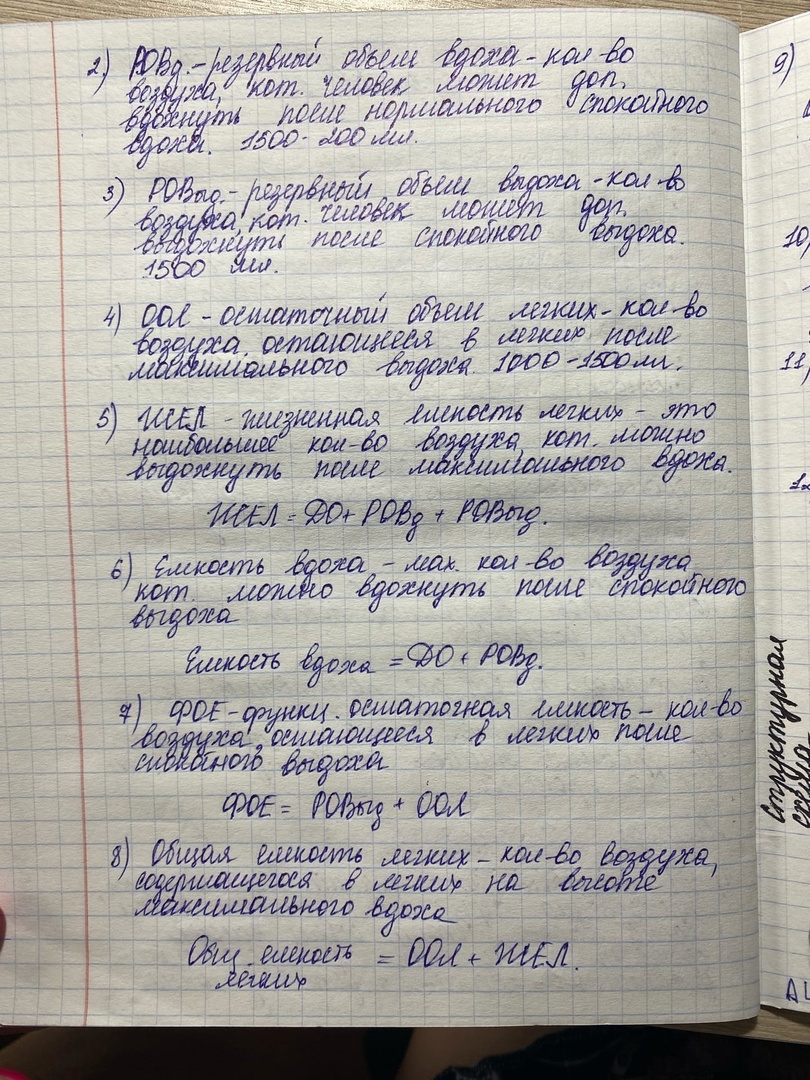 2) РОВд.-резервный объем вдоха-кол-во
воздуха, кот. человек может доп.
вдохнуть после нормального спокойного
вдоха. 1500-200 мл.
3) РОВыд.-резервный объем выдоха-кол-во
воздуха, кот. человек может доп.
выдохнуть после спокойного выдоха.
1500 мл.
4) ООЛ - остаточный объем легких-кол-во
воздуха, остающееся в легких после
максимального выдоха 1000-1500мл.
5) ЖЕЛ - жизненная емкость легких - это
наибольшее кол-во воздуха, кот. можно
выдохнуть после максимального вдоха.
ЖЕЛ = ДО+ РОВд + РОВыд.
6) Емкость вдоха - мах. кол-во воздуха
кот. можно вдохнуть после спокойного
выдоха
Емкость вдоха = ДО + РОВд.
7) ФОЕ-функц. остаточная емкость - кол-во
воздуха, остающееся в легких после
спокойного выдоха
ФОЕ = РОВыд + ООЛ
8) Общая емкость легких - кол-во воздуха,
содержащегося в легких на высоте
максимального вдоха
Общ. емкость = ООЛ + ЖЕЛ.
легких
9)
10)
11)
структурная